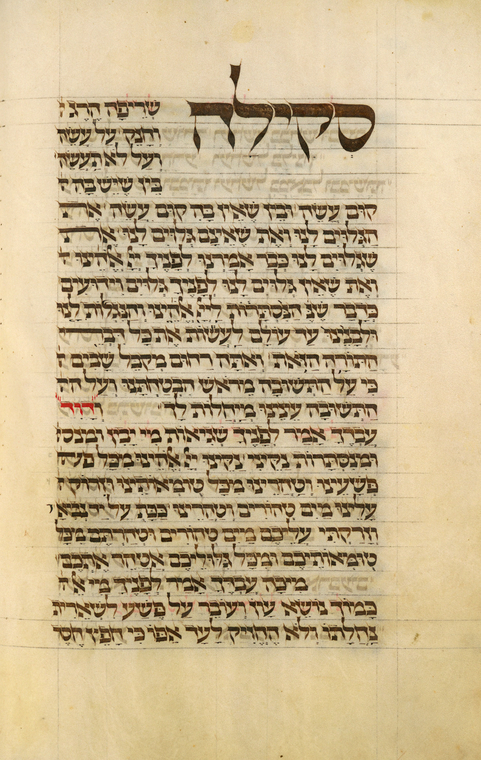 סקילה
שריפה הרג ו
וחנק על עשה
ועל לא תעשה
בין שיש בה ק
קום עשה ובין שאין בה קום עשה את
הגלוים לנו ואת שאינם גלוים לנו את
שגלוים לנו כבר אמרנו לפניך יי אלהינו ו
ואת שאין גלוים לנו לפניך גלוים וידועים
כדבר שנ הנסתרות ליי אלהינו והנגלות לנו
ולבנינו עד עולם לעשות את כל דברי
התורה הזאת ואתה רחום מקבל שבים ה
כי על התשובה מראש הבטחתנו ועל הת
התשובה עינינו מיחלות לך ודוד
עבדך אמר לפניך שגיאות מי יבין ומנסת
ומנסתרות נקיני נקינו יי אלהינו מכל פשעי
פשעינו וטהרינו מכל טומאותינו וזרוק ע
עלינו מים טהורים וטהרינו ככת על יד נביאך
וזרקתי עליכם מים טהורים וטהרתם מכל
טומאותיכם ומכל גלוליכם אטהר אתכם
מיכה עבדך אמר לפניך מי אל
כמוך נושא עון ועובר על פשע לשארית
נחלתו לא החזיק לעד אפו כי חפץ חסד